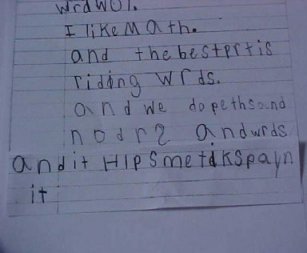 wrdwol.
I like Math.
and the bestprtis
riding wrds.
and we do pethsand
nodr2 andwrds
andit HlpSmetdkspayn
it